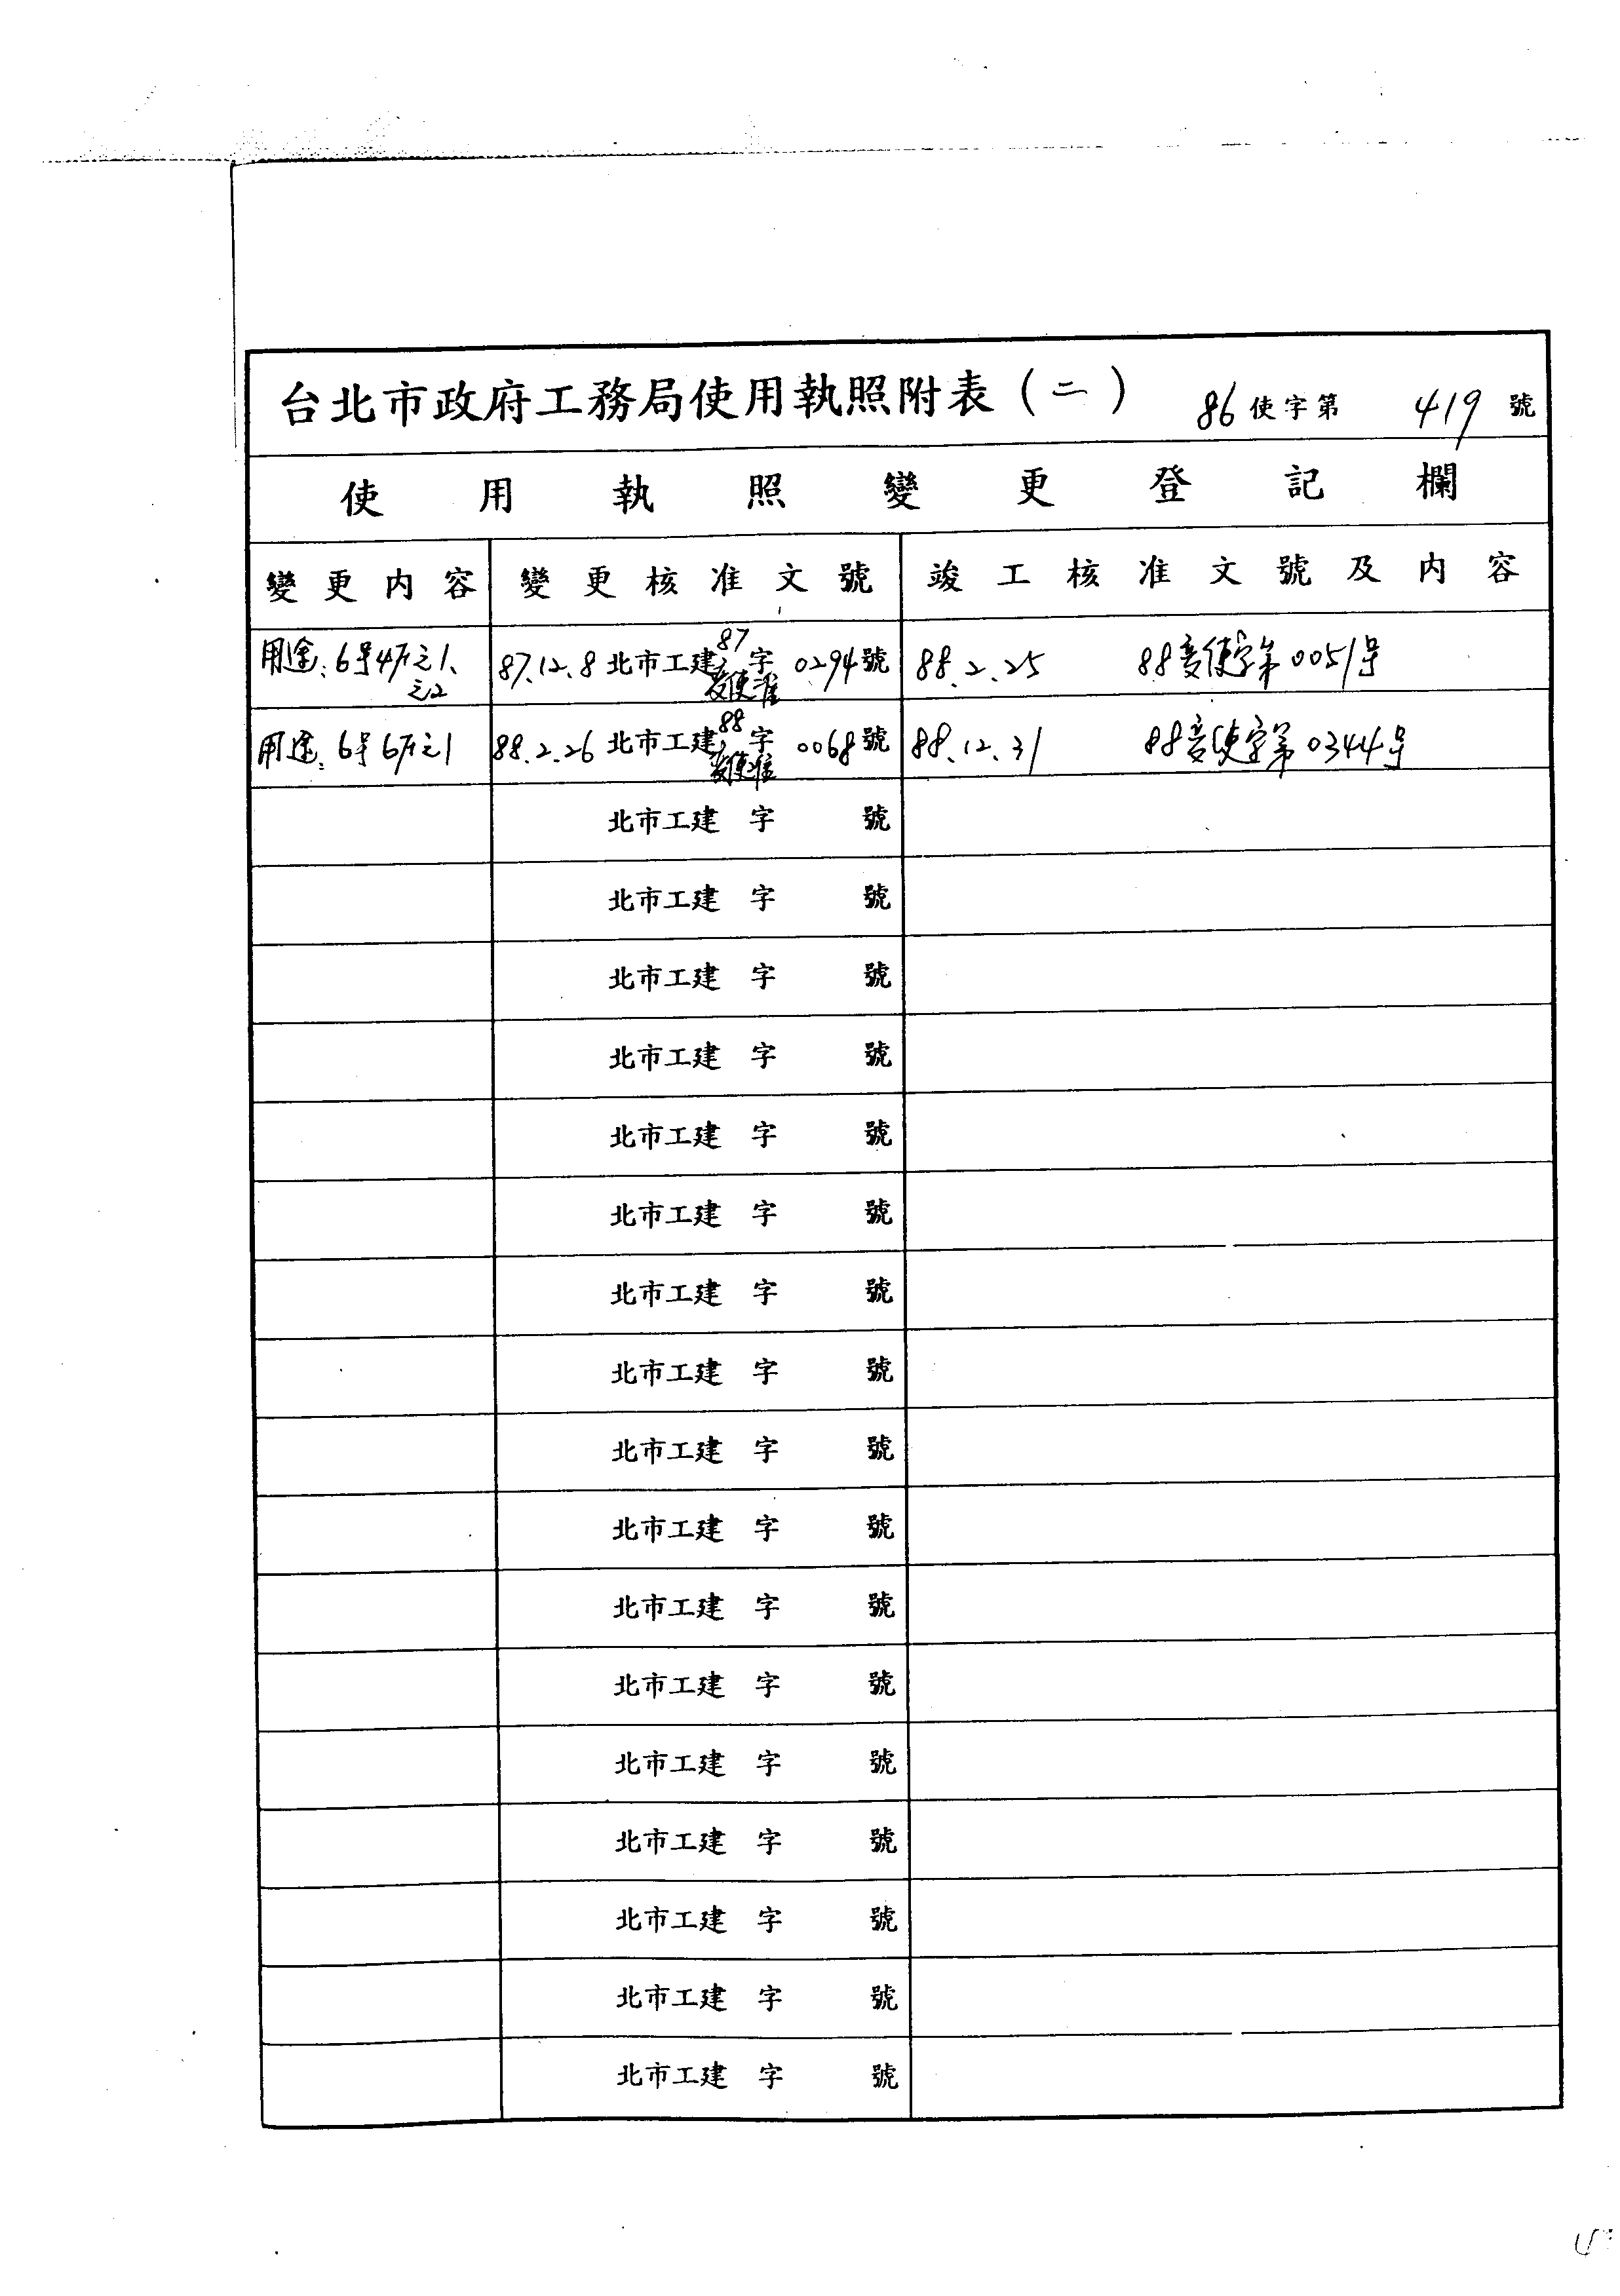 台北市政府工務局使用執照附表(二) 86使字第 419 號
使用執照變更登記欄
變更內容 變更核准文號 竣工核准文號及內容
用途:6号4F之1、之2 87.12.8 北市工建 87變使准 字 0294 號 88.2.25 88變使字第0051号
用途:6号6F之1 88.2.26 北市工建 88變使准 字 0068 號 88.12.31 88變使字第0344号
北市工建 字 號
北市工建 字 號
北市工建 字 號
北市工建 字 號
北市工建 字 號
北市工建 字 號
北市工建 字 號
北市工建 字 號
北市工建 字 號
北市工建 字 號
北市工建 字 號
北市工建 字 號
北市工建 字 號
北市工建 字 號
北市工建 字 號
北市工建 字 號
北市工建 字 號